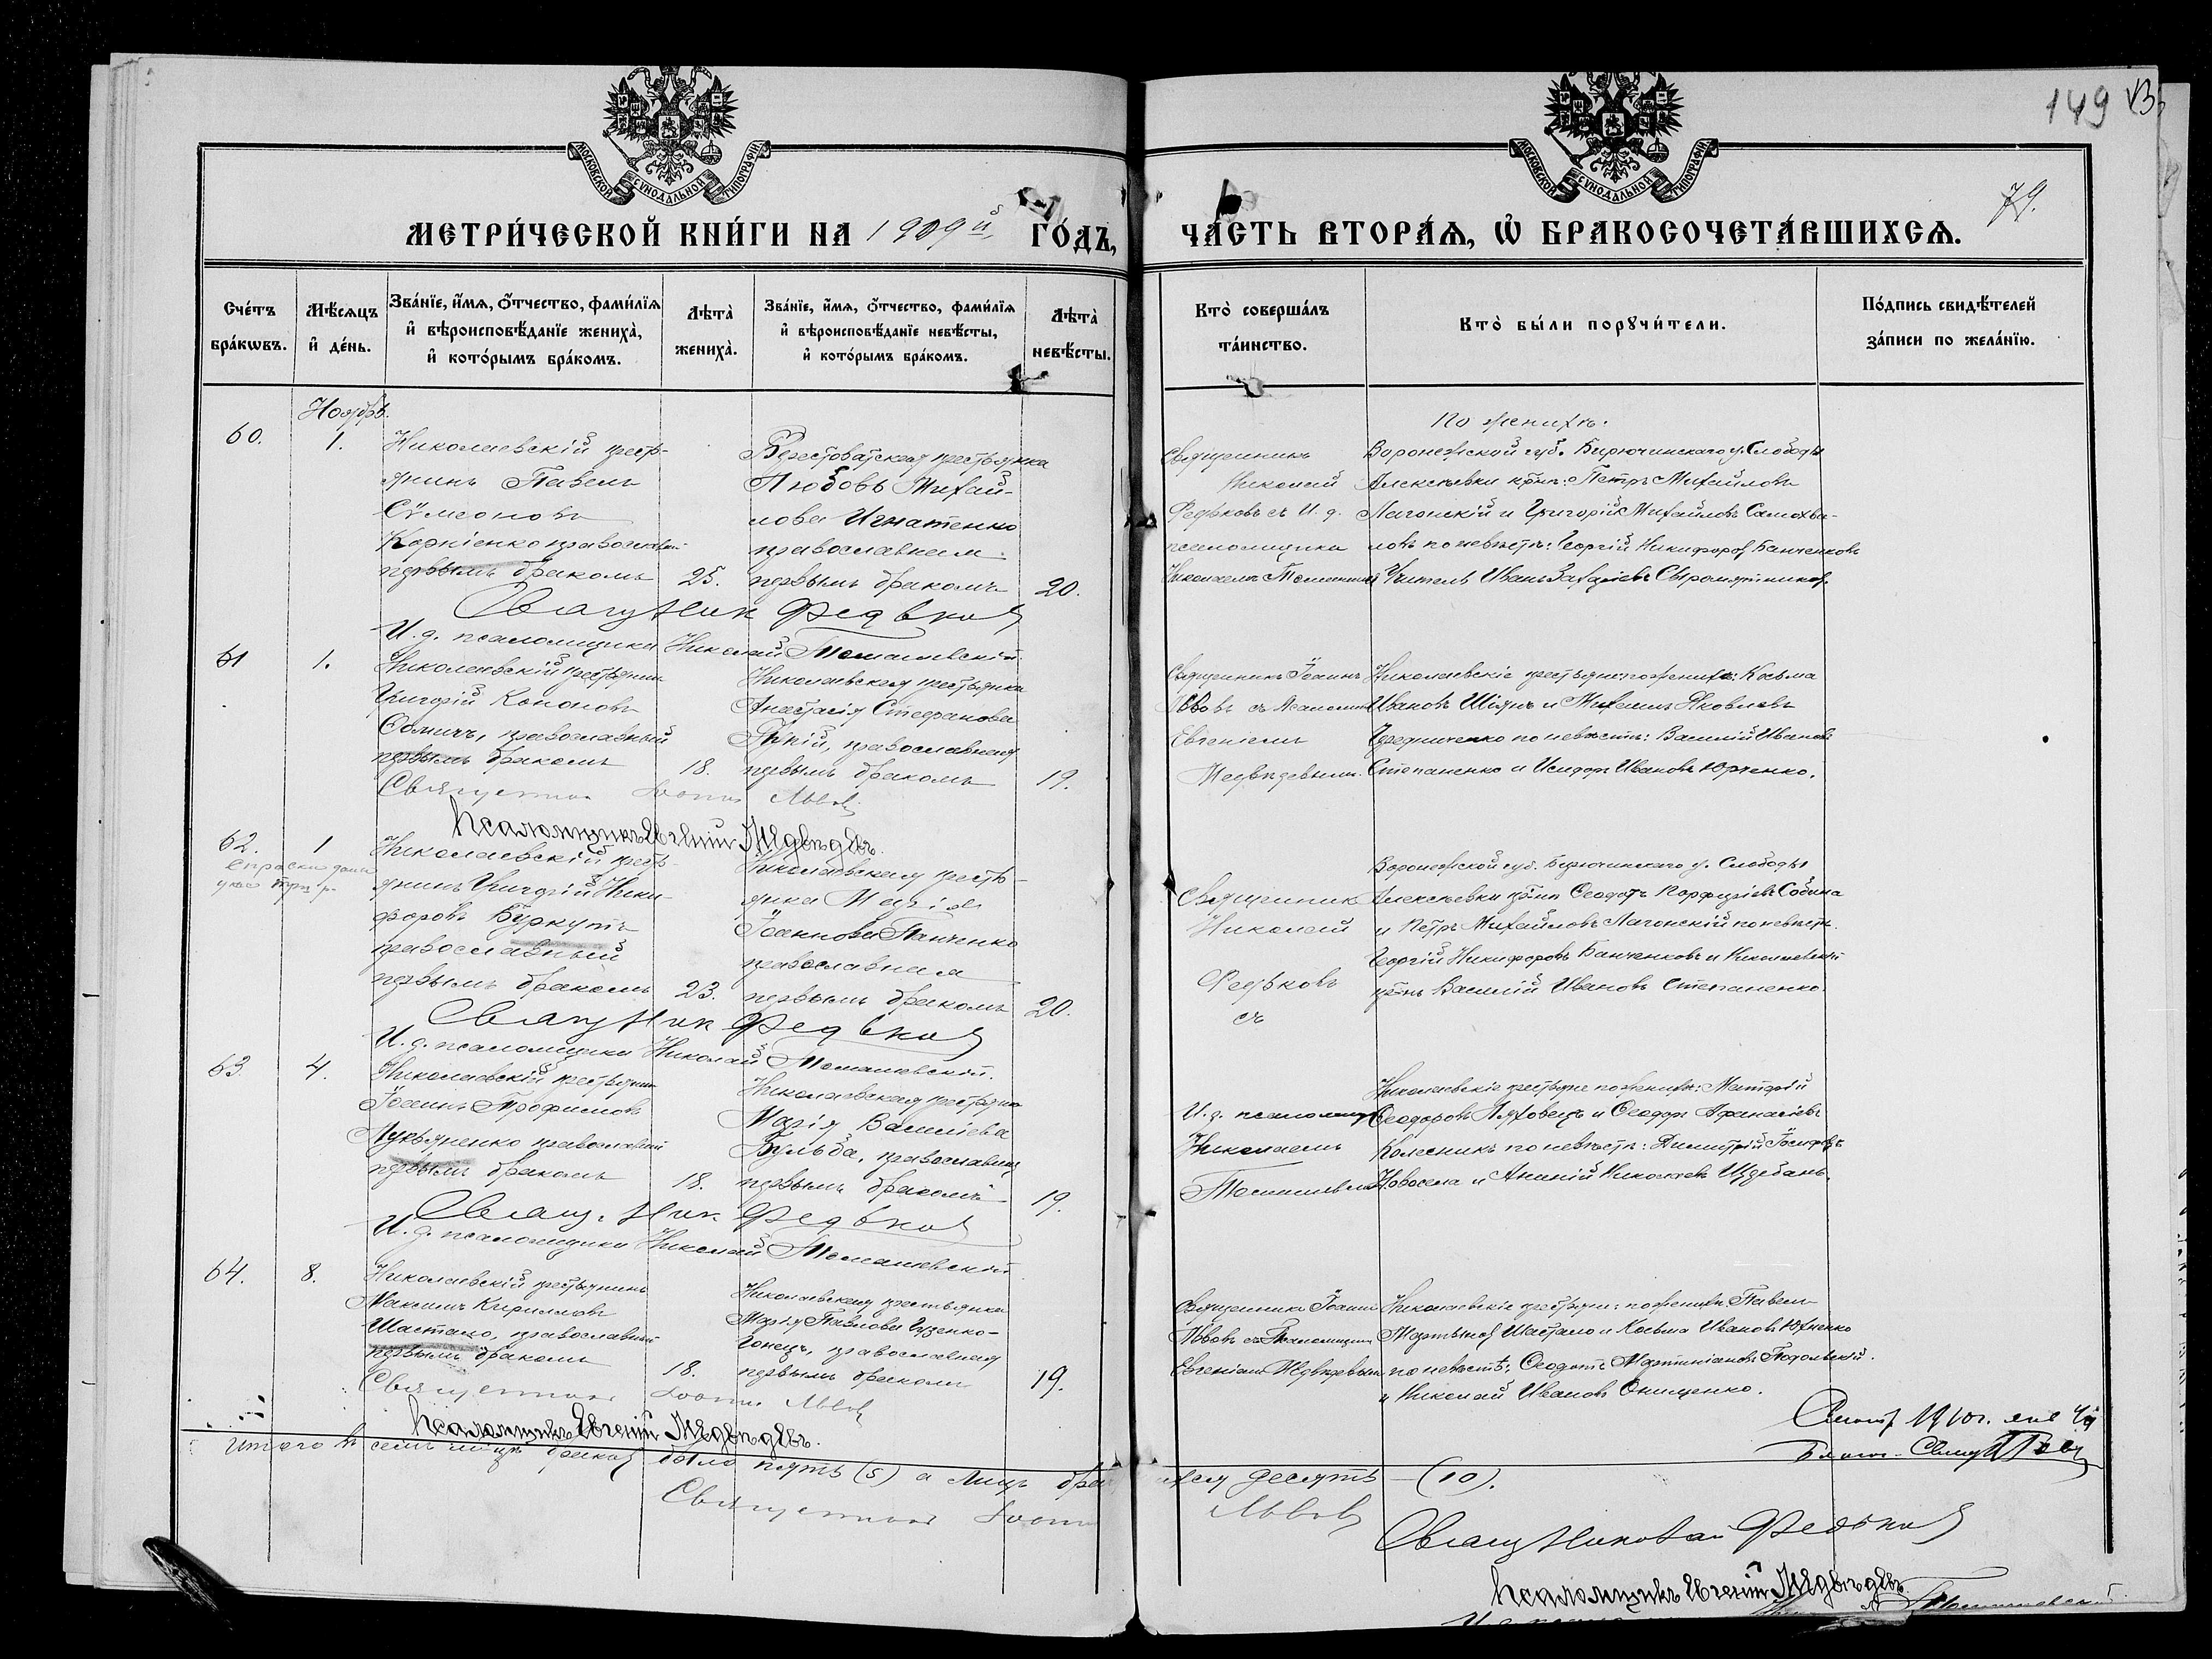 149
79.
МОСКОВСКОЙ СѴНОДАЛЬНОЙ ТИПОГРАФІИ
МОСКОВСКОЙ СѴНОДАЛЬНОЙ ТИПОГРАФІИ
МЕТРИ́ЧЕСКОЙ КНИ́ГИ НА 1909й ГО́ДЪ, ЧА́СТЬ ВТОРА́Ѧ, Ѡ҆ БРАКОСОЧЕТА́ВШИХСѦ.
Сче́тъ бра́кѡвъ.
Мѣ́сѧцъ и҆ де́нь.
Зва́нїе, и҆́мѧ, ѻ҆́тчество, фами́лїѧ и҆ вѣроисповѣ́данїе жениха̀, и҆ кото́рымъ бра́комъ.
Лѣта̀ жениха̀.
Зва́нїе, и҆́мѧ, ѻ҆́тчество, фами́лїѧ и҆ вѣроисповѣ́данїе невѣ́сты, и҆ кото́рымъ бра́комъ.
Лѣта̀ невѣ́сты.
Кто̀ соверша́лъ та́инство.
Кто̀ бы́ли порꙋчи́тели.
По́дпись свидѣ́телей за́писи по жела́нїю.
Ноябрь.
60.
1.
Николаевскій кресть-
янинъ Павелъ
Сѵмеоновъ
Корніенко православный
первымъ бракомъ
25.
крестьянка
Любовь Михай-
лова Игнатенко
православная
первымъ бракомъ
20.
Священникъ
Николай
Федьковъ съ И. д.
псаломщика
Николаемъ
По женихѣ:
Воронежской губ. Бирюченскаго у. Слободы
Алексѣевки крнъ: Петръ Михайловъ
Лагонскій и Григорій Михайловъ Самохва-
ловъ по невѣстѣ: Георгій Никифоровъ Банченковъ
Учитель Иванъ Захаріевъ Сыромятниковъ.
Свящ Ник Федьков
И. д. псаломщика Николай Томашевскій
61
1.
Николаевскій крестьянинъ
Григорій Кононовъ
православный
первымъ бракомъ
18.
Николаевская крестьянка
Анастасія Стефанова
православная
первымъ бракомъ
19.
Священникъ Іоаннъ
Львовъ съ Псаломщ
Евгеніемъ
Медвѣдевымъ.
Николаевскіе крестьяне: по женихѣ: Косьма
Ивановъ и Михаилъ Яковлевъ
Чередниченко по невѣстѣ: Василій Ивановъ
Степаненко и Исидоръ Ивановъ Юрченко.
Священникъ Іоаннъ Львов
Псаломщикъ Евгеній Медвѣдевъ.
62.
1
Николаевскій кресть-
янинъ Григорій Ники-
форовъ Буркутъ
православный
первымъ бракомъ
23.
Николаевская кресть-
янка Марія
Іоаннова Панченко
православная
первымъ бракомъ
20.
Священник
Николай
Федьковъ
съ
Воронежской губ. Бирюченскаго у. Слободы
Алексѣевки крнъ Ѳеодотъ Порфиріевъ Собина
и Петръ Михайловъ Лагонскій по невѣстѣ.
Георгій Никифоровъ Банченковъ и Николаевскій
крнъ Василій Ивановъ Степаненко.
Свящ Ник Федьков
И. д. псаломщика Николай Томашевскій.
63
4.
Николаевскій крестьянинъ
Іоаннъ Трофимовъ
Лукьяненко православный
первымъ бракомъ
18.
Николаевская крестьянка
Марія Василіева
Бульба, православная
первымъ бракомъ
19.
И. д. псаломщ
Николаемъ
Николаевскіе крестьяне по женихѣ:
Ѳеодоровъ Ляховецъ и Ѳеодоръ Афанасіевъ
Колесникъ по невѣстѣ: Димитрій Іосифовъ
Новосела и Ананій Николаевъ
Свящ. Ник Федьков
И. д. псаломщика Николай Томашевскій
64.
8.
Николаевскій крестьянинъ
Максимъ Кирилловъ
Шастало, православный
первымъ бракомъ
18.
Николаевская крестьянка
Марія Павлова Гузенко-
Гонецъ, православная
первымъ бракомъ
19.
Священникъ Іоаннъ
Львовъ съ Псаломщик
Евгеніемъ Медвѣдевым
Николаевскіе крестьяне: по женихѣ Павелъ
Мартыновъ Шастало и Косьма Ивановъ Юхненко
по невѣстѣ: Ѳеодотъ Мартиніановъ Подольскій.
и Николай Ивановъ Онищенко.
Священникъ Іоаннъ Львов
Псаломщикъ Евгеній Медвѣдевъ.
1910 г.
Итого в семъ браков было пять (5) а лицъ десять (10).
Священникъ Іоаннъ Львов
Свящ Николай Федьков
Псаломщикъ Евгеній Медвѣдевъ.